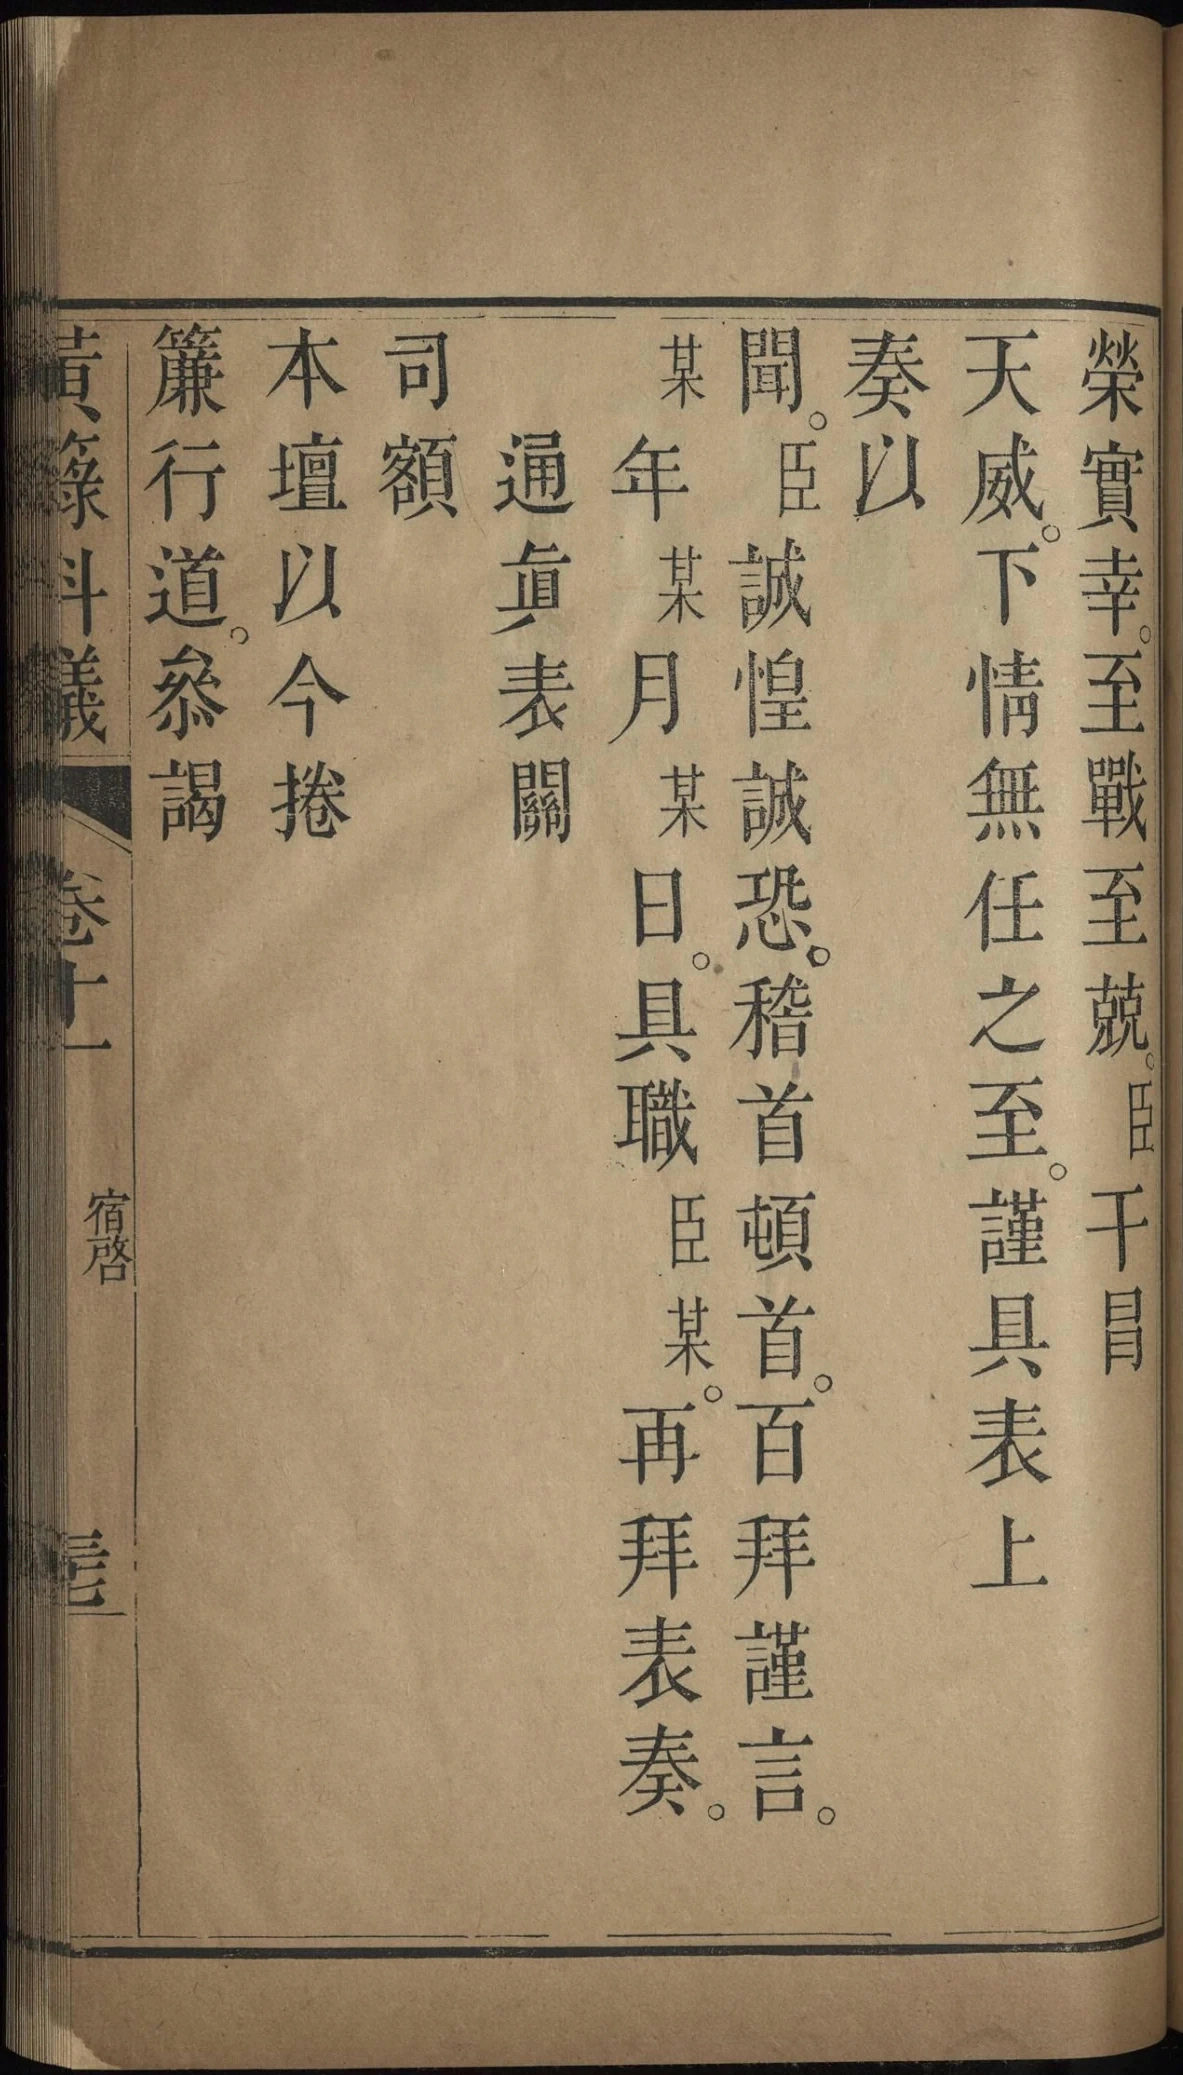 榮實幸。至戰至兢。臣干冒
天威。下情無任之至。謹具表上
奏以
聞。臣誠惶誠恐。稽首頓首。百拜謹言。
某年某月某日。具職臣某。再拜表奏。
通眞表關
司額
本壇以今捲
簾行道。叅謁
黃籙科儀 卷十一 宿啓